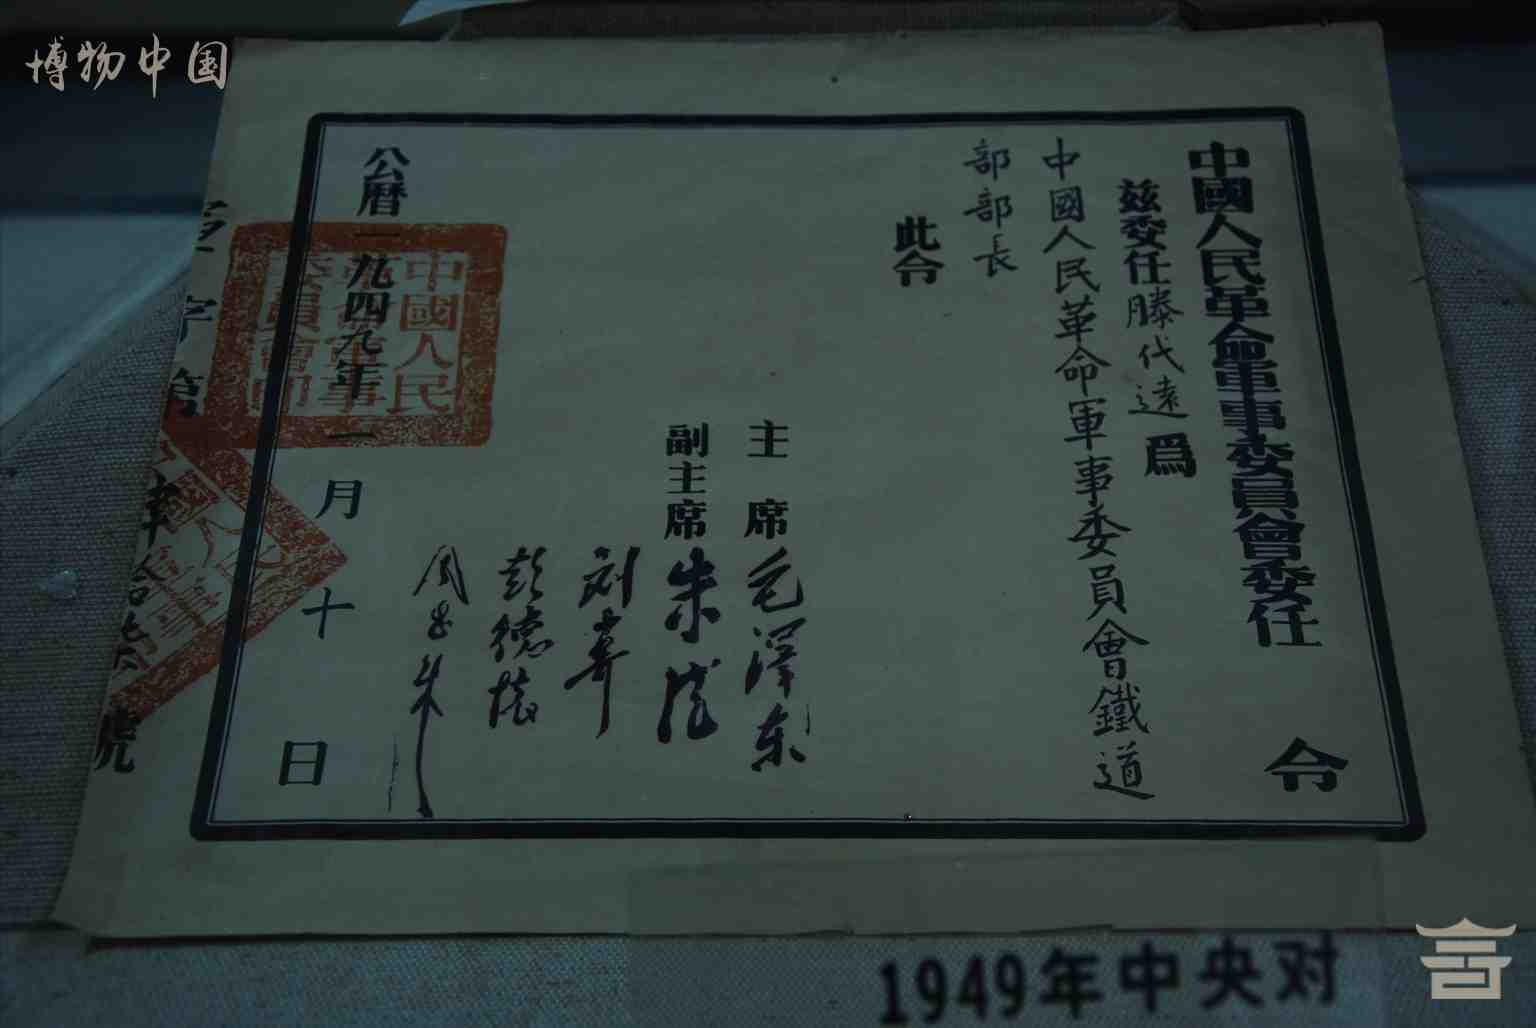 博物中国
中國人民革命軍事委員會委任令
兹委任滕代遠爲
中國人民革命軍事委員會鐵道
部部長
此令
主席毛泽东
副主席朱德
刘少奇
彭德怀
周恩来
公曆一九四九年十一月十日
中國人民
革命軍事
委員會印
字第
號
1949年中央对